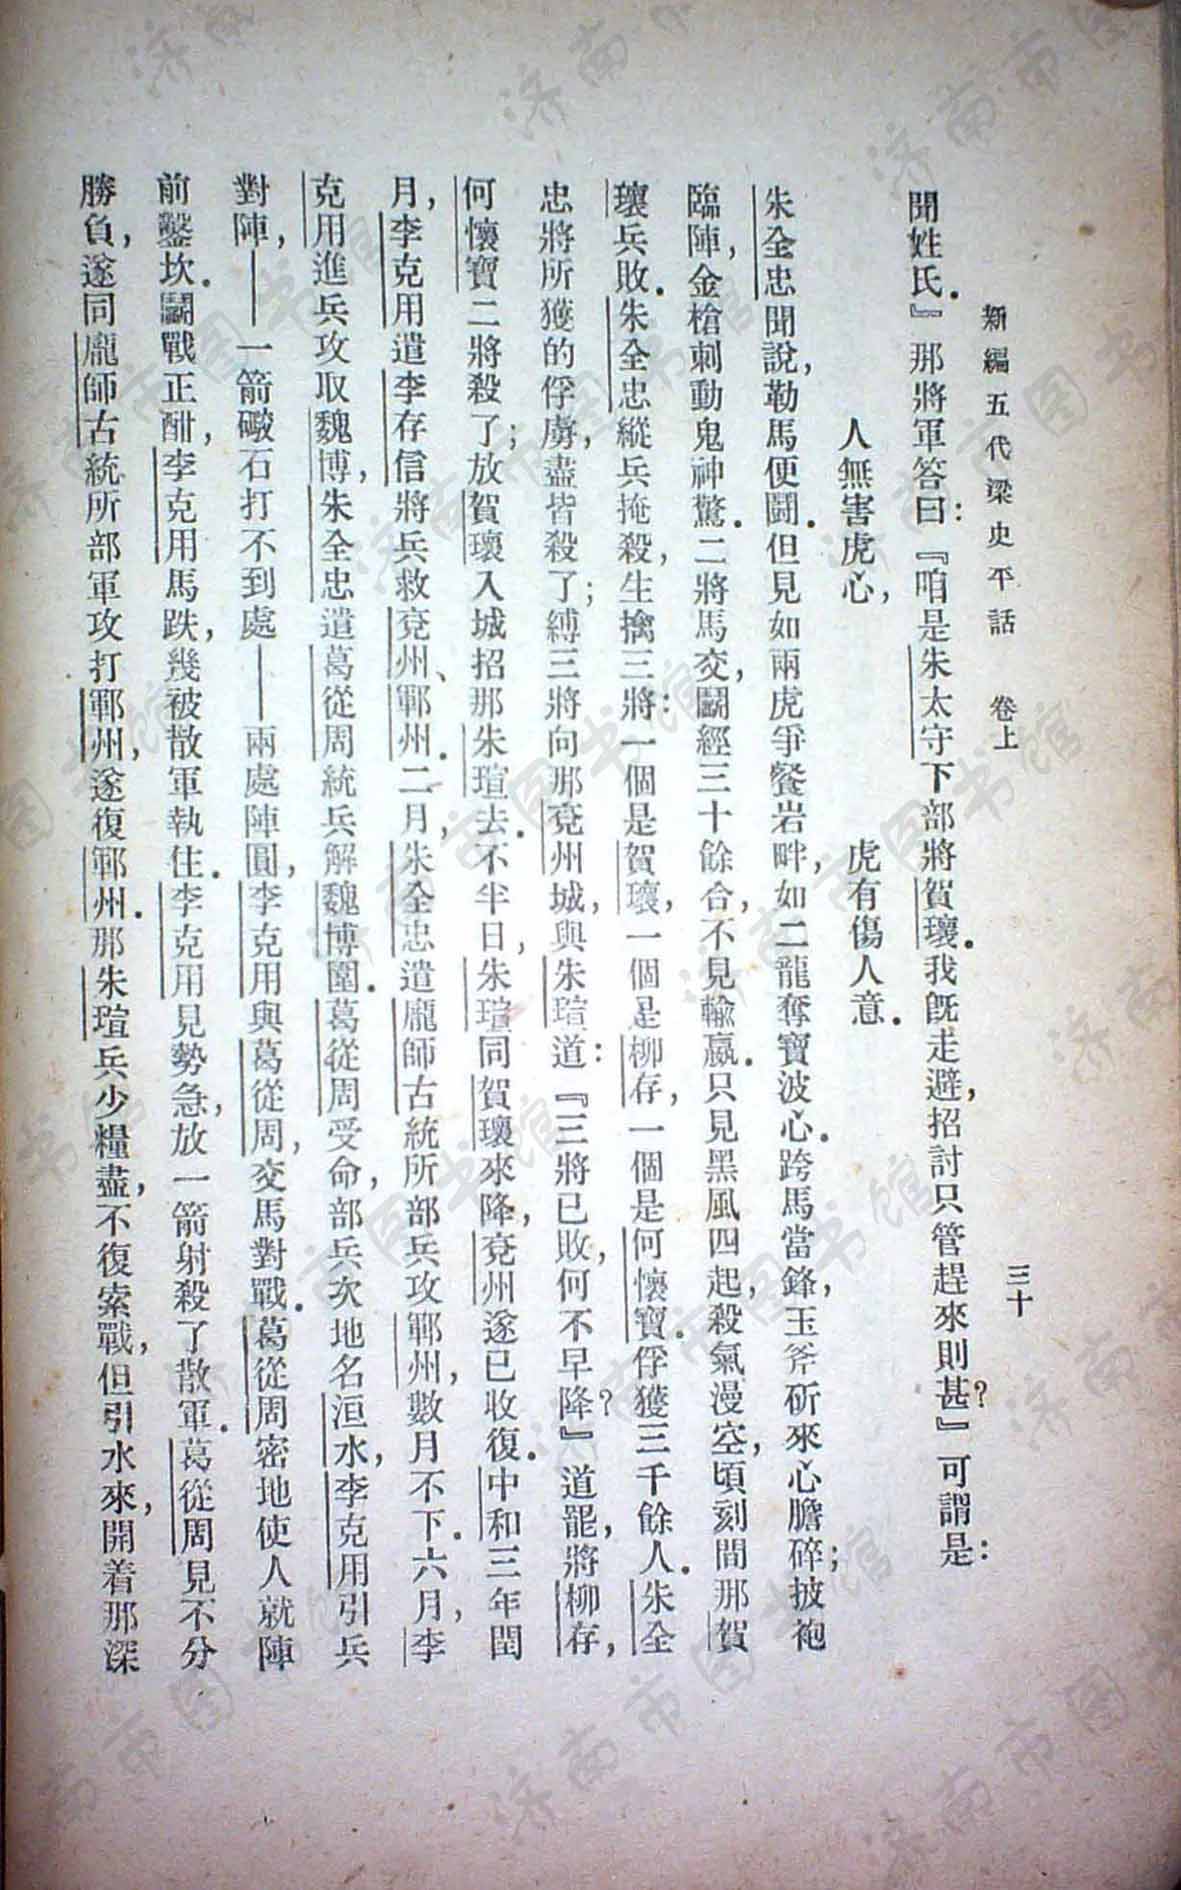 新編五代梁史平話　卷上　三十
聞姓氏．』那將軍答曰：『咱是朱太守下部將賀瓌．我旣走避，招討只管趕來則甚？』可謂是：
人無害虎心，　虎有傷人意．
朱全忠聞說，勒馬便鬭．但見如兩虎爭餐岩畔，如二龍奪寶波心．跨馬當鋒，玉斧斫來心膽碎；披袍
臨陣，金槍刺動鬼神驚．二將馬交，鬭經三十餘合，不見輸嬴．只見黑風四起，殺氣漫空，頃刻間那賀
瓌兵敗．朱全忠縱兵掩殺，生擒三將：一個是賀瓌，一個是柳存，一個是何懷寶．俘獲三千餘人．朱全
忠將所獲的俘虜，盡皆殺了；縛三將向那兗州城，與朱瑄道：『三將已敗，何不早降？』道罷，將柳存，
何懷寶二將殺了；放賀瓌入城招那朱瑄去．不半日，朱瑄同賀瓌來降，兗州遂已收復．中和三年閏
月，李克用遣李存信將兵救兗州、鄆州．二月，朱全忠遣龐師古統所部兵攻鄆州，數月不下．六月，李
克用進兵攻取魏博，朱全忠遣葛從周統兵解魏博圍．葛從周受命，部兵次地名洹水，李克用引兵
對陣，——一箭礮石打不到處——兩處陣圓，李克用與葛從周，交馬對戰．葛從周密地使人就陣
前鑿坎．鬭戰正酣，李克用馬跌，幾被散軍執住．李克用見勢急，放一箭射殺了散軍．葛從周見不分
勝負，遂同龐師古統所部軍攻打鄆州，遂復鄆州．那朱瑄兵少糧盡，不復索戰，但引水來，開着那深
济南市图书馆